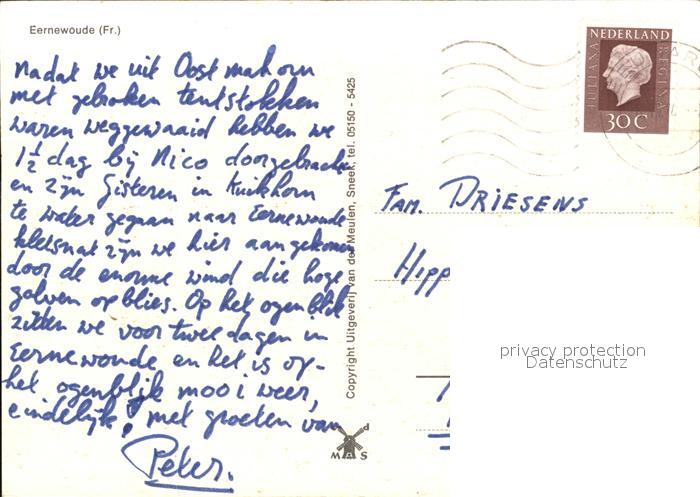 Eernewoude (Fr.)
nadat we uit Oostmahorn
met gebroken tentstokken
waren weggewaaid hebben we
1½ dag bij Nico doorgebracht
en zijn gisteren in Kuikhorn
te water gegaan naar Eernewoude
kletsnat zijn we hier aangekomen
door de enorme wind die hoge
golven opblies. Op het ogenblik
zitten we voor twee dagen in
Eernewoude en het is op-
het ogenblijk mooi weer,
eindelijk! met groeten van
Peter.
Copyright Uitgeverij van der Meulen, Sneek, tel. 05150 - 5425
d
M S
NEDERLAND
JULIANA
REGINA
30 C
FAM. DRIESENS
Hipp
privacy protection
Datenschutz